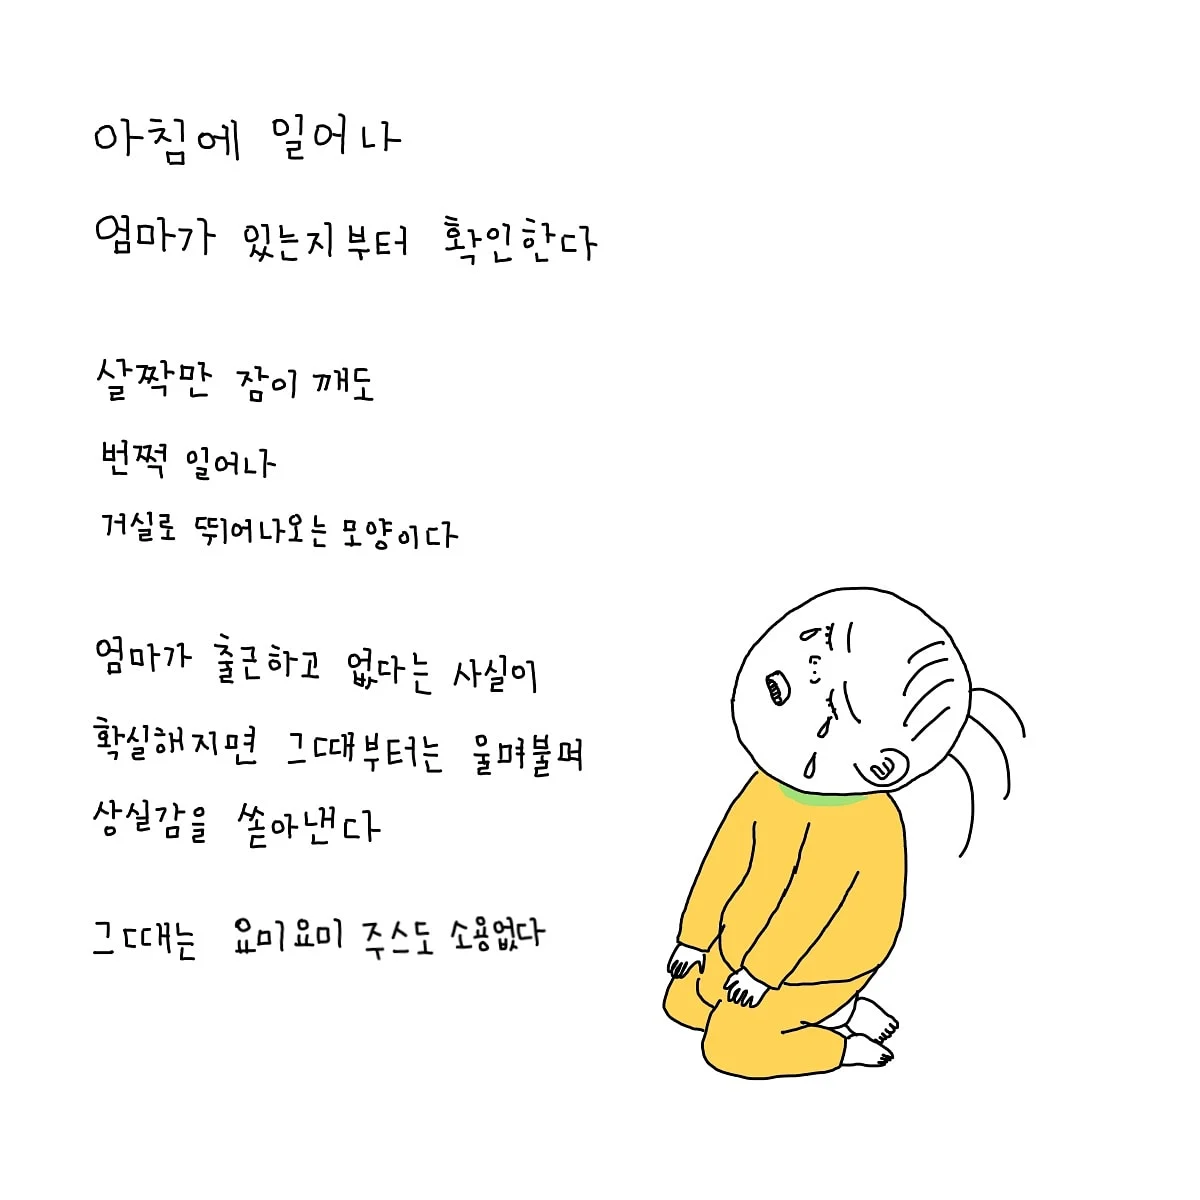 아침에 일어나
엄마가 있는지부터 확인한다
살짝만 잠이 깨도
번쩍 일어나
거실로 뛰어나오는 모양이다
엄마가 출근하고 없다는 사실이
확실해지면 그때부터는 울며불며
상실감을 쏟아낸다
그때는 요미요미 주스도 소용없다